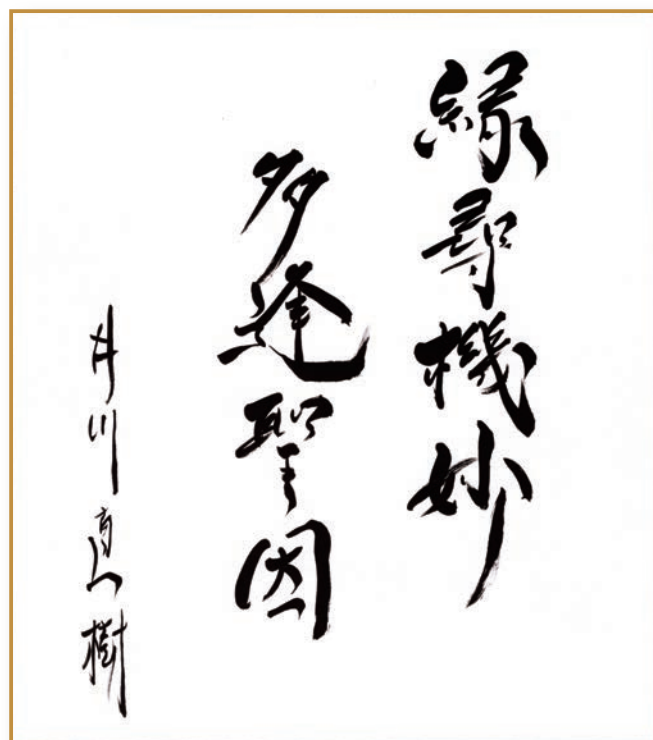 縁尋機妙
多逢聖因
井川直樹